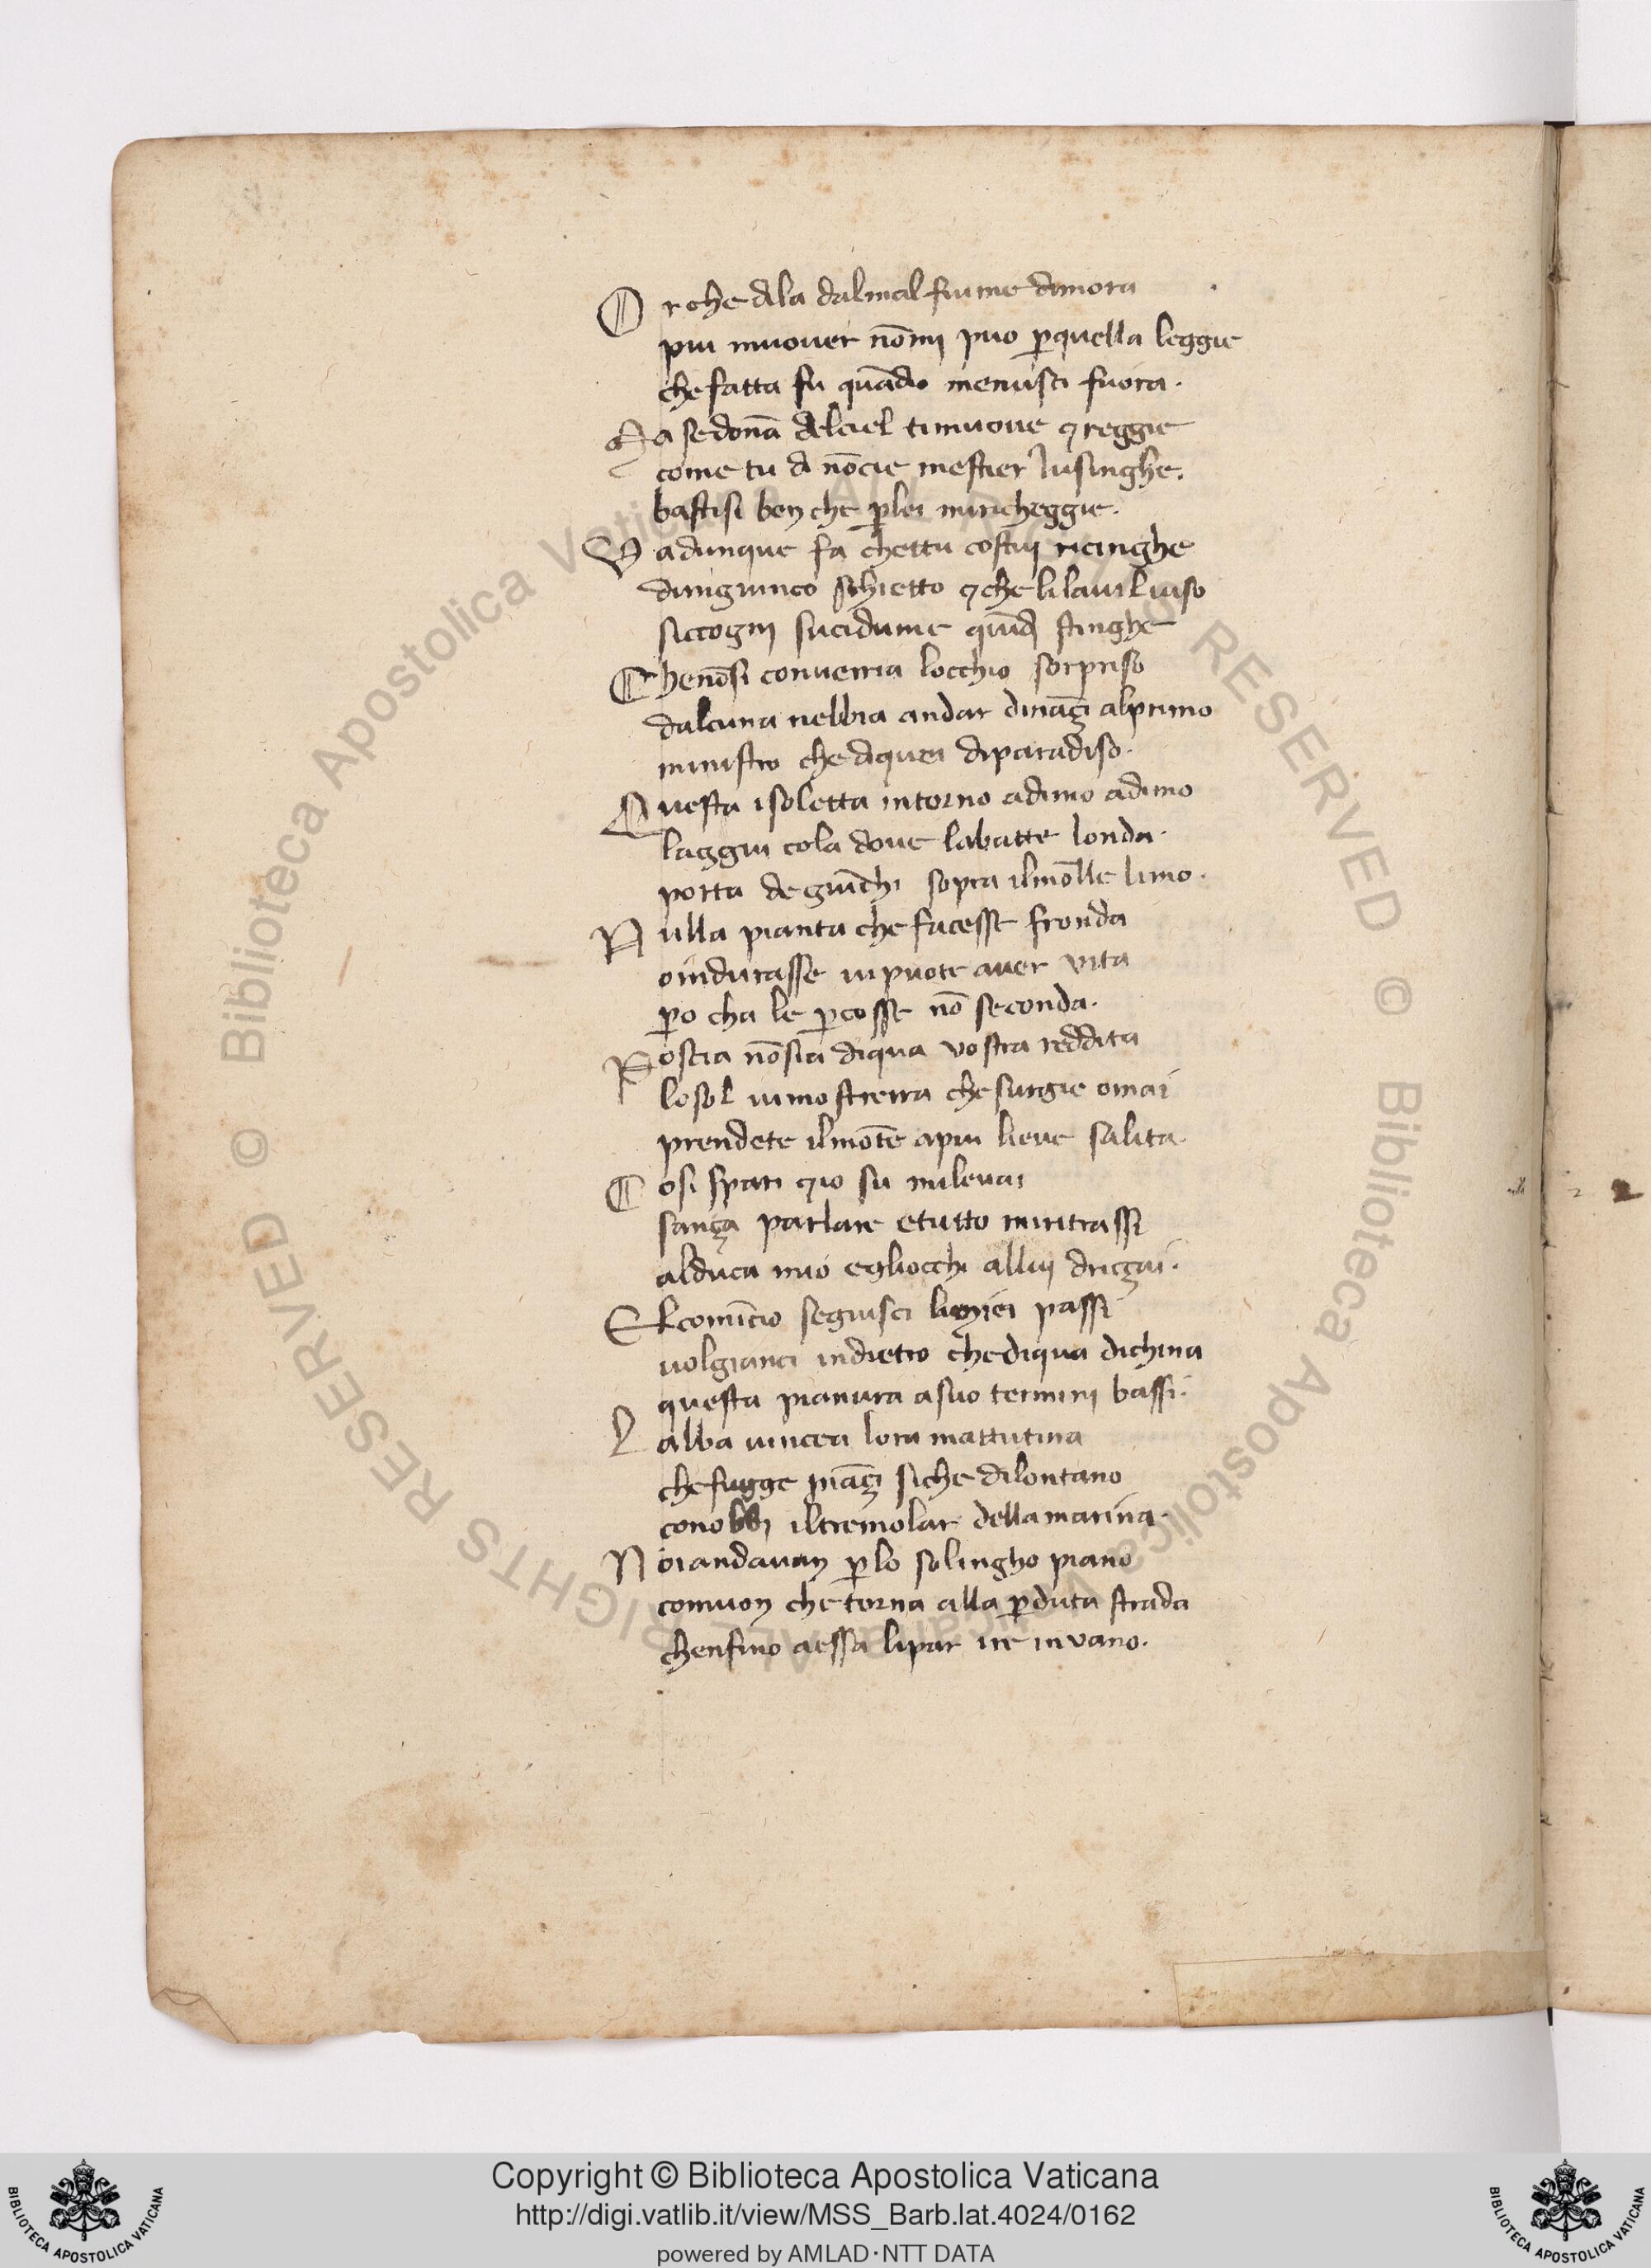 Or che dila dalmal fiume dimora
piu muouer nōmi puo ꝑquella leggie
che fatta fu quādo menusci fuora.
Ma sedonā delciel timuoue ⁊reggie
come tu di nōcie mestier lusinghe.
bastisi ben che ꝑlei mirichieggie.
Va dunque fa chettu costui ricinghe
dungiunco schietto ⁊che lilauil uiso
siccogni sucidume quīdi stinghe
Chenōsi conuerria locchio sorpriso
dalcuna nebbia andar dināçi alprimo
ministro chediquei diparadiso.
Questa isoletta intorno adimo adimo
laggiu cola doue labatte londa.
porta de giūchi sopra ilmōlle limo.
Nulla pianta che facesse fronda
oindurasse uipuote auer vita
ꝑo cha le ꝑcosse nō seconda.
Poscia nōsia diqua vostra reddita
losol uimosterra che surgie omai
prendete ilmōte apiu lieue salita.
Cosi spari ⁊io su mileuai
sança parlare etutto miritrassi
alduca mio egliocchi allui driççai.
Elcomīcio seguisci limiei passi
uolgianci indietro chediqua dichina
questa pianura asuo termini bassi.
Lalba uincea lora mattutina
che fugge ināçi siche dilontano
conobbi iltremolar dellamarina.
Noiandauan ꝑlo solingho piano
comuon che torna alla ꝑduta strada
chenfino aessa lipar ire inuano.
© Biblioteca Apostolica Vaticana ALL RIGHTS RESERVED © Biblioteca Apostolica Vaticana ALL RIGHTS RESERVED
Copyright © Biblioteca Apostolica Vaticana
http://digi.vatlib.it/view/MSS_Barb.lat.4024/0162
powered by AMLAD·NTT DATA
BIBLIOTECA APOSTOLICA VATICANA
BIBLIOTECA APOSTOLICA VATICANA